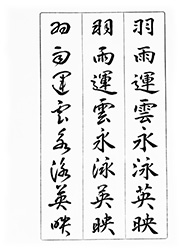 羽雨運雲永泳英映
羽雨運雲永泳英映
羽雨運雲永泳英映